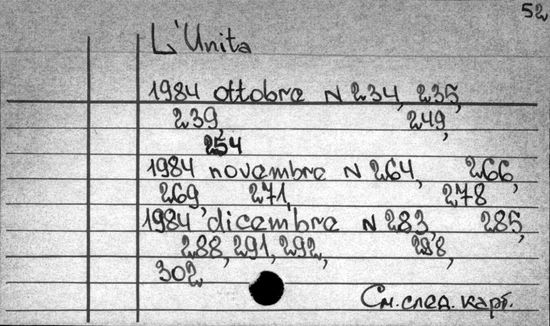 52
L'Unita
1984 ottobre N 234, 235,
239, 249,
254
1984 novembre N 264, 266,
269, 271, 278
1984 dicembre N 283, 285,
288, 291, 292, 298,
302
См. след. карт.